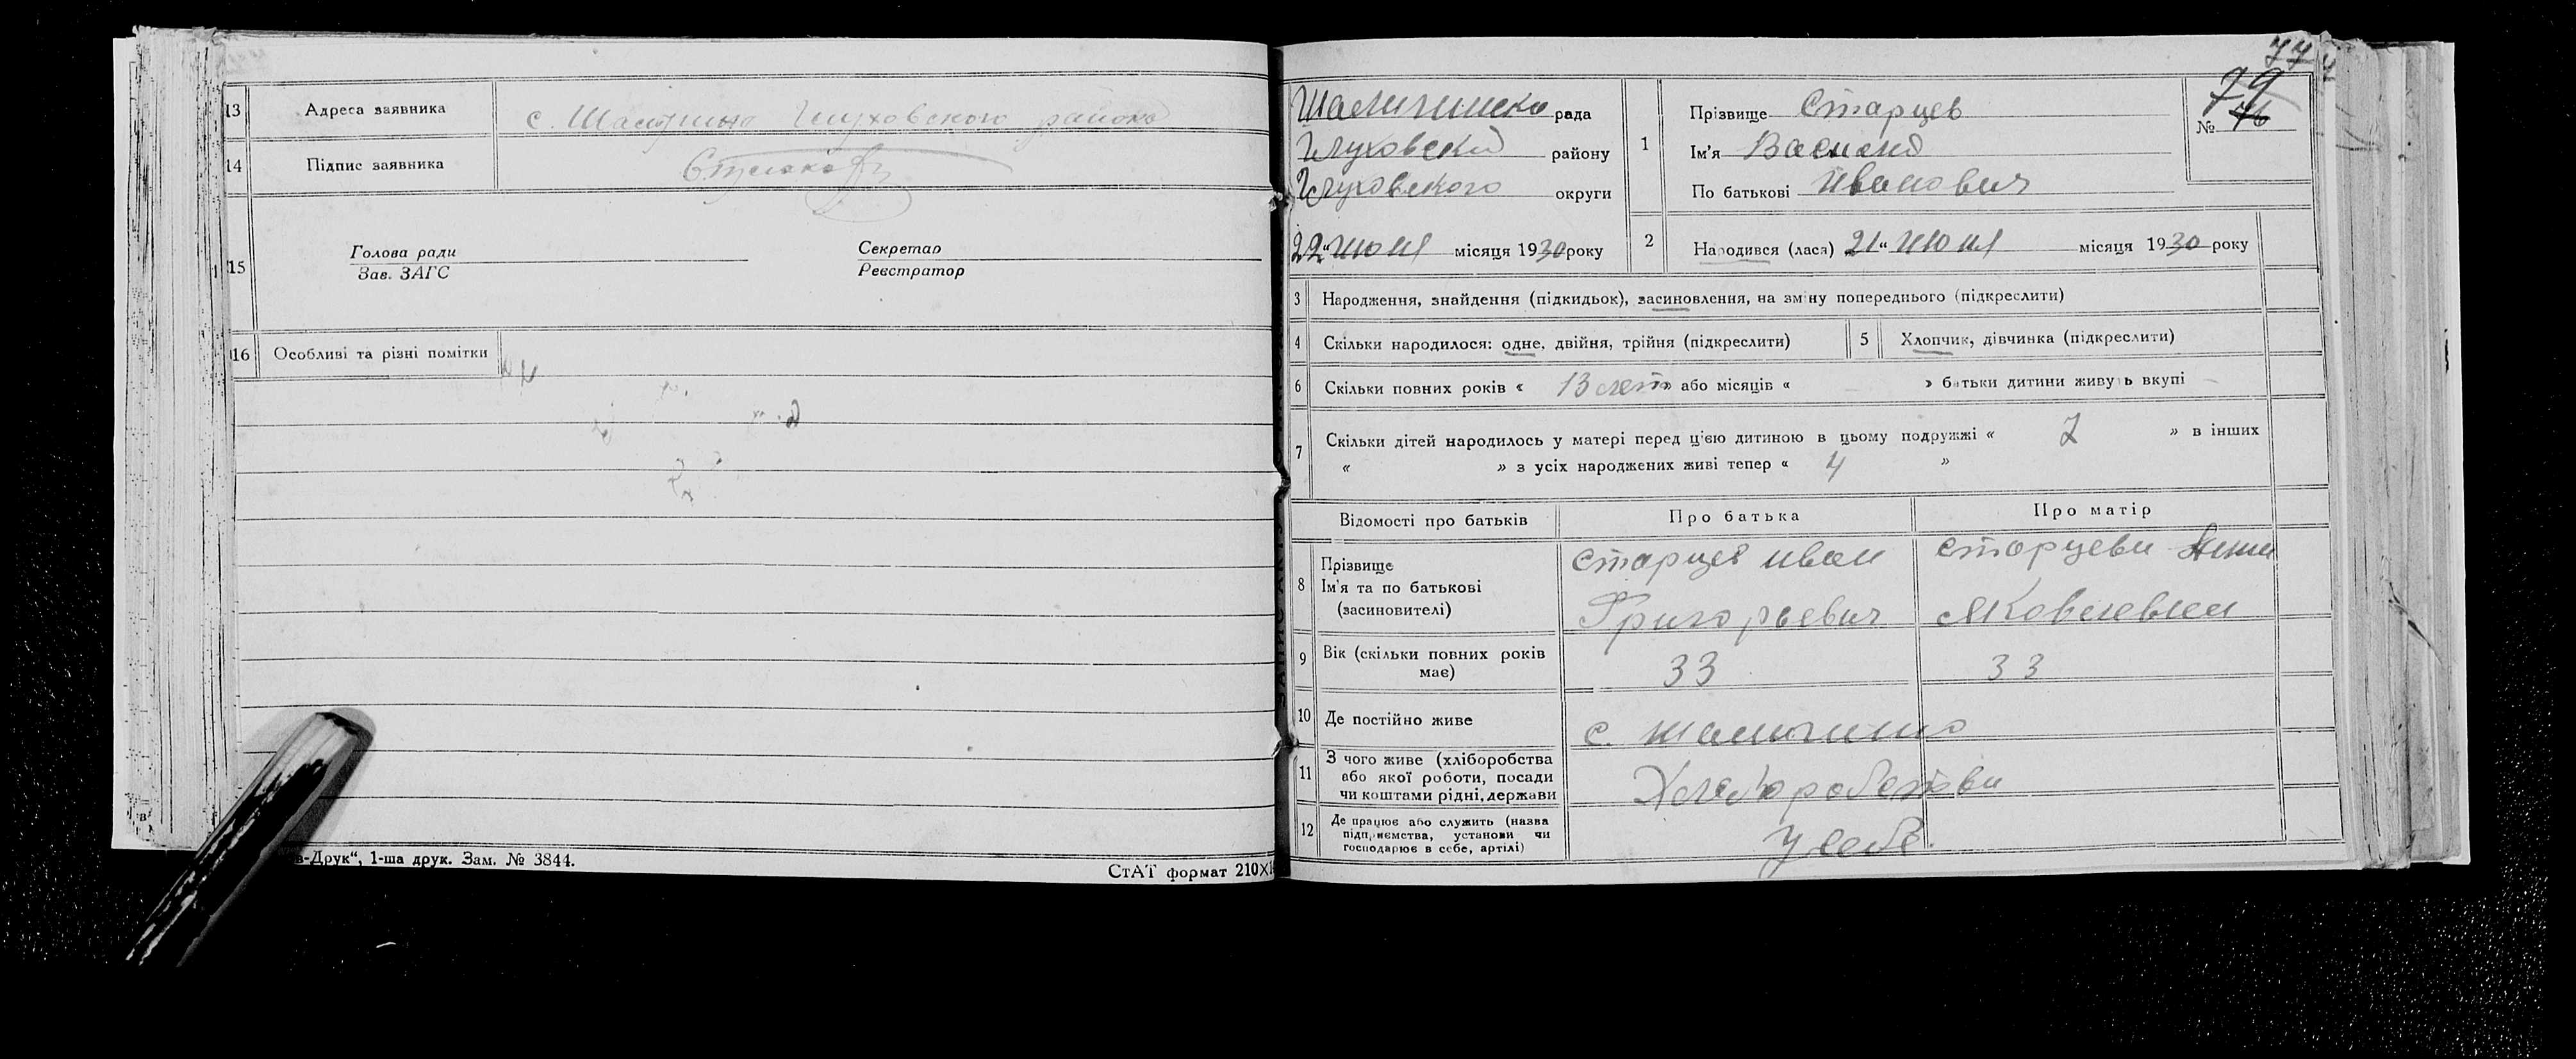 13 Адреса заявника с. Шалыгино Глуховского района
14 Підпис заявника
15 Голова ради Секретар
Зав. ЗАГС Реєстратор
16 Особливі та різні помітки
в-Друк“, 1-ша друк. Зам. № 3844.
СтАТ формат 210Х
77
79
№ 76
рада
Глуховский району
Глуховского округи
22 „ июня місяця 1930 року
1 Прізвище Старцев
Ім'я Василий
По батькові Иванович
2 Народився (лася) 21 „ июня місяця 1930 року
3 Народження, знайдення (підкидьок), засиновлення, на зміну попереднього (підкреслити)
4 Скільки народилося: одне, двійня, трійня (підкреслити) 5 Хлопчик, дівчинка (підкреслити)
6 Скільки повних років « 13 лет » або місяців « — » батьки дитини живуть вкупі —
7 Скільки дітей народилось у матері перед цією дитиною в цьому подружжі « 7 » в інших
« » з усіх народжених живі тепер « 4 »
Відомості про батьків Про батька Про матір
8 Прізвище
Ім'я та по батькові
(засиновителі)
Старцев Иван
Григорьевич
Старцева Анна
Яковлевна
9 Вік (скільки повних років
має) 33 33
10 Де постійно живе с. Шалыгино
11 З чого живе (хліборобства
або якої роботи, посади
чи коштами рідні, держави
12 Де працює або служить (назва
підприємства, установи чи
господарює в себе, артілі)
У себе